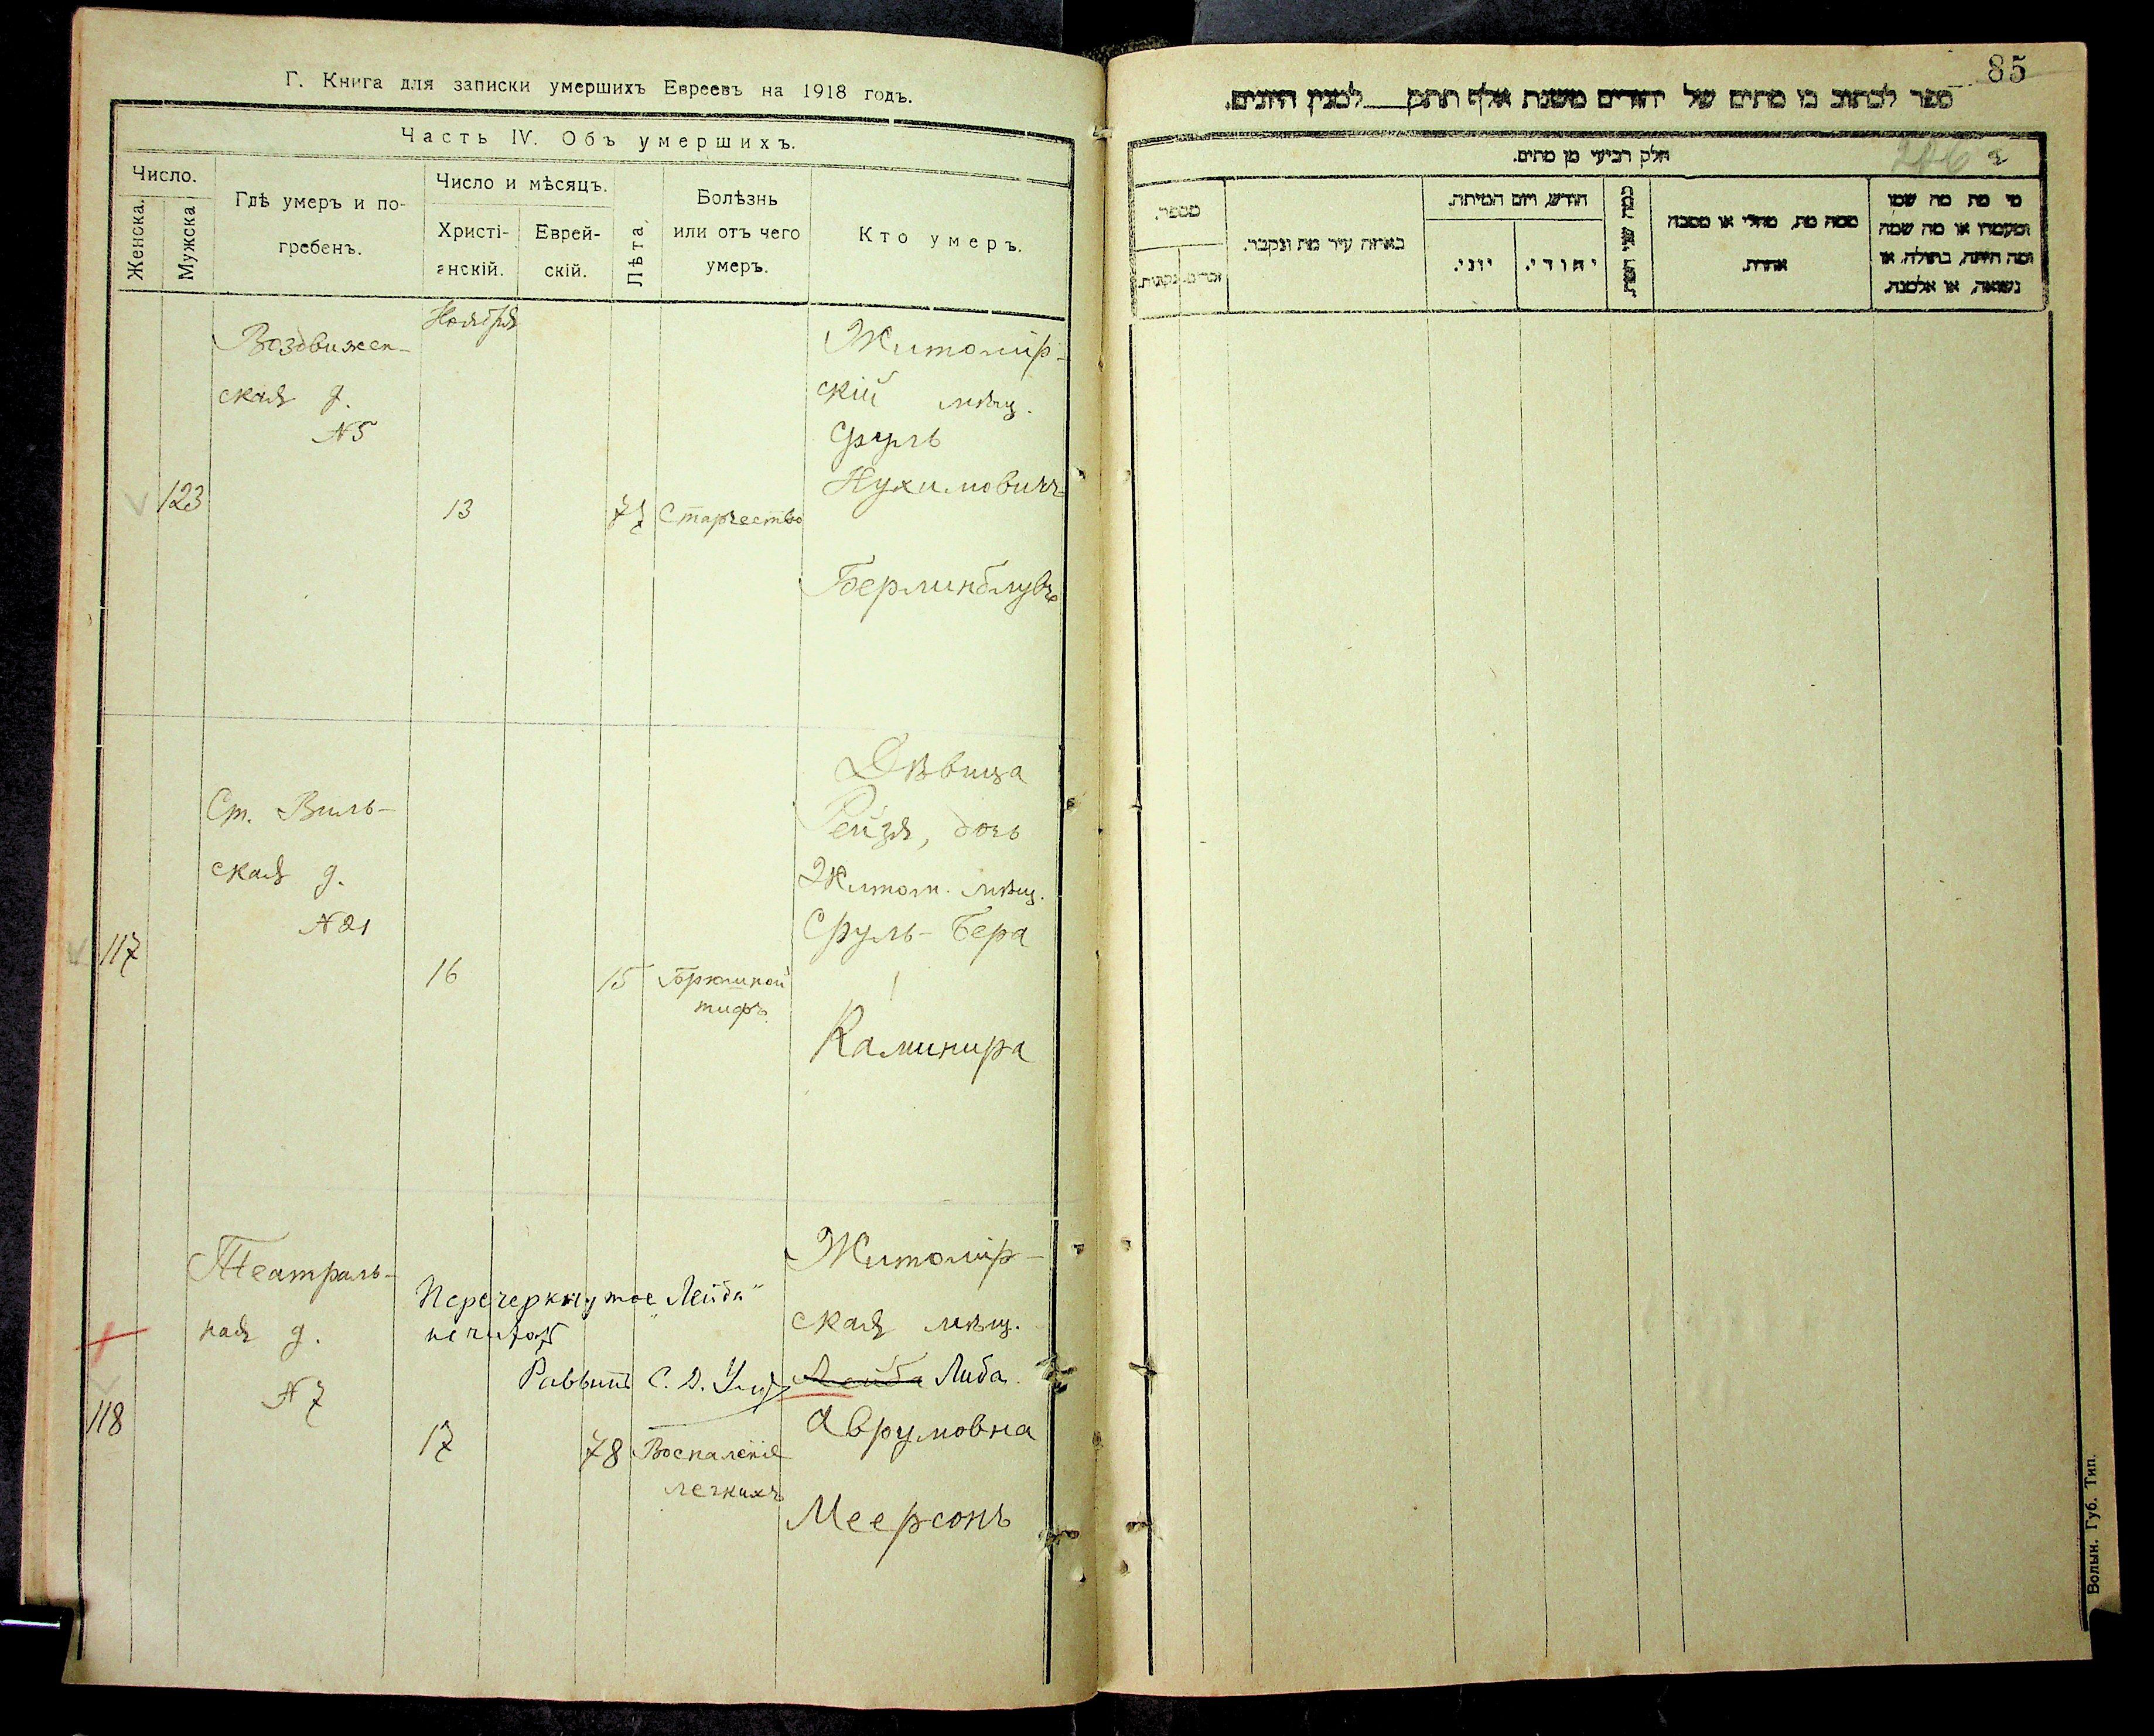 Г. Книга для записки умершихъ Евреевъ на 1918 годъ.
Часть IV. Объ умершихъ.
Число.
Женска.
Мужска
Гдѣ умеръ и по-
гребенъ.
Число и мѣсяцъ.
Христі-
анскій.
Еврей-
скій.
Лѣта
Болѣзнь
или отъ чего
умеръ.
Кто умеръ.
Ноября
Воздвижен-
ская д.
№5
123
13
77
Старчество
Житомір-
скій мѣщ.
Сруль
Нухимовичъ
Берлинблувъ
Ст. Виль-
ская д.
№21
117
16
15
Брюшной
тифъ
Дѣвица
Рейзя, дочь
Житом. мѣщ.
Сруль-Бера
Каминира
Театраль-
ная д.
№7
118
Перечеркнутое „Лейба"
не читать
Раввинъ С. Д.
17
78
Воспаленіе
легкихъ
Житомір-
ская мѣщ.
Лейба Либа
Аврумовна
Меерсонъ
85
ספר לכתוב בו מתים של יהודים משנת אלף תתק למנין היונים.
חלק רביעי מן מתים.
מספר.
זכרים.
נקבות.
באיזה עיר מת ונקבר.
חודש, ויום המיתה.
יוני.
יהודי.
כמה שני המת.
ממה מת, מחלי או מסבה
אחרת.
מי מת מה שמו
ומעמדו או מה שמה
ומה היתה, בתולה, או
נשואה, או אלמנה.
Волын. Губ. Тип.